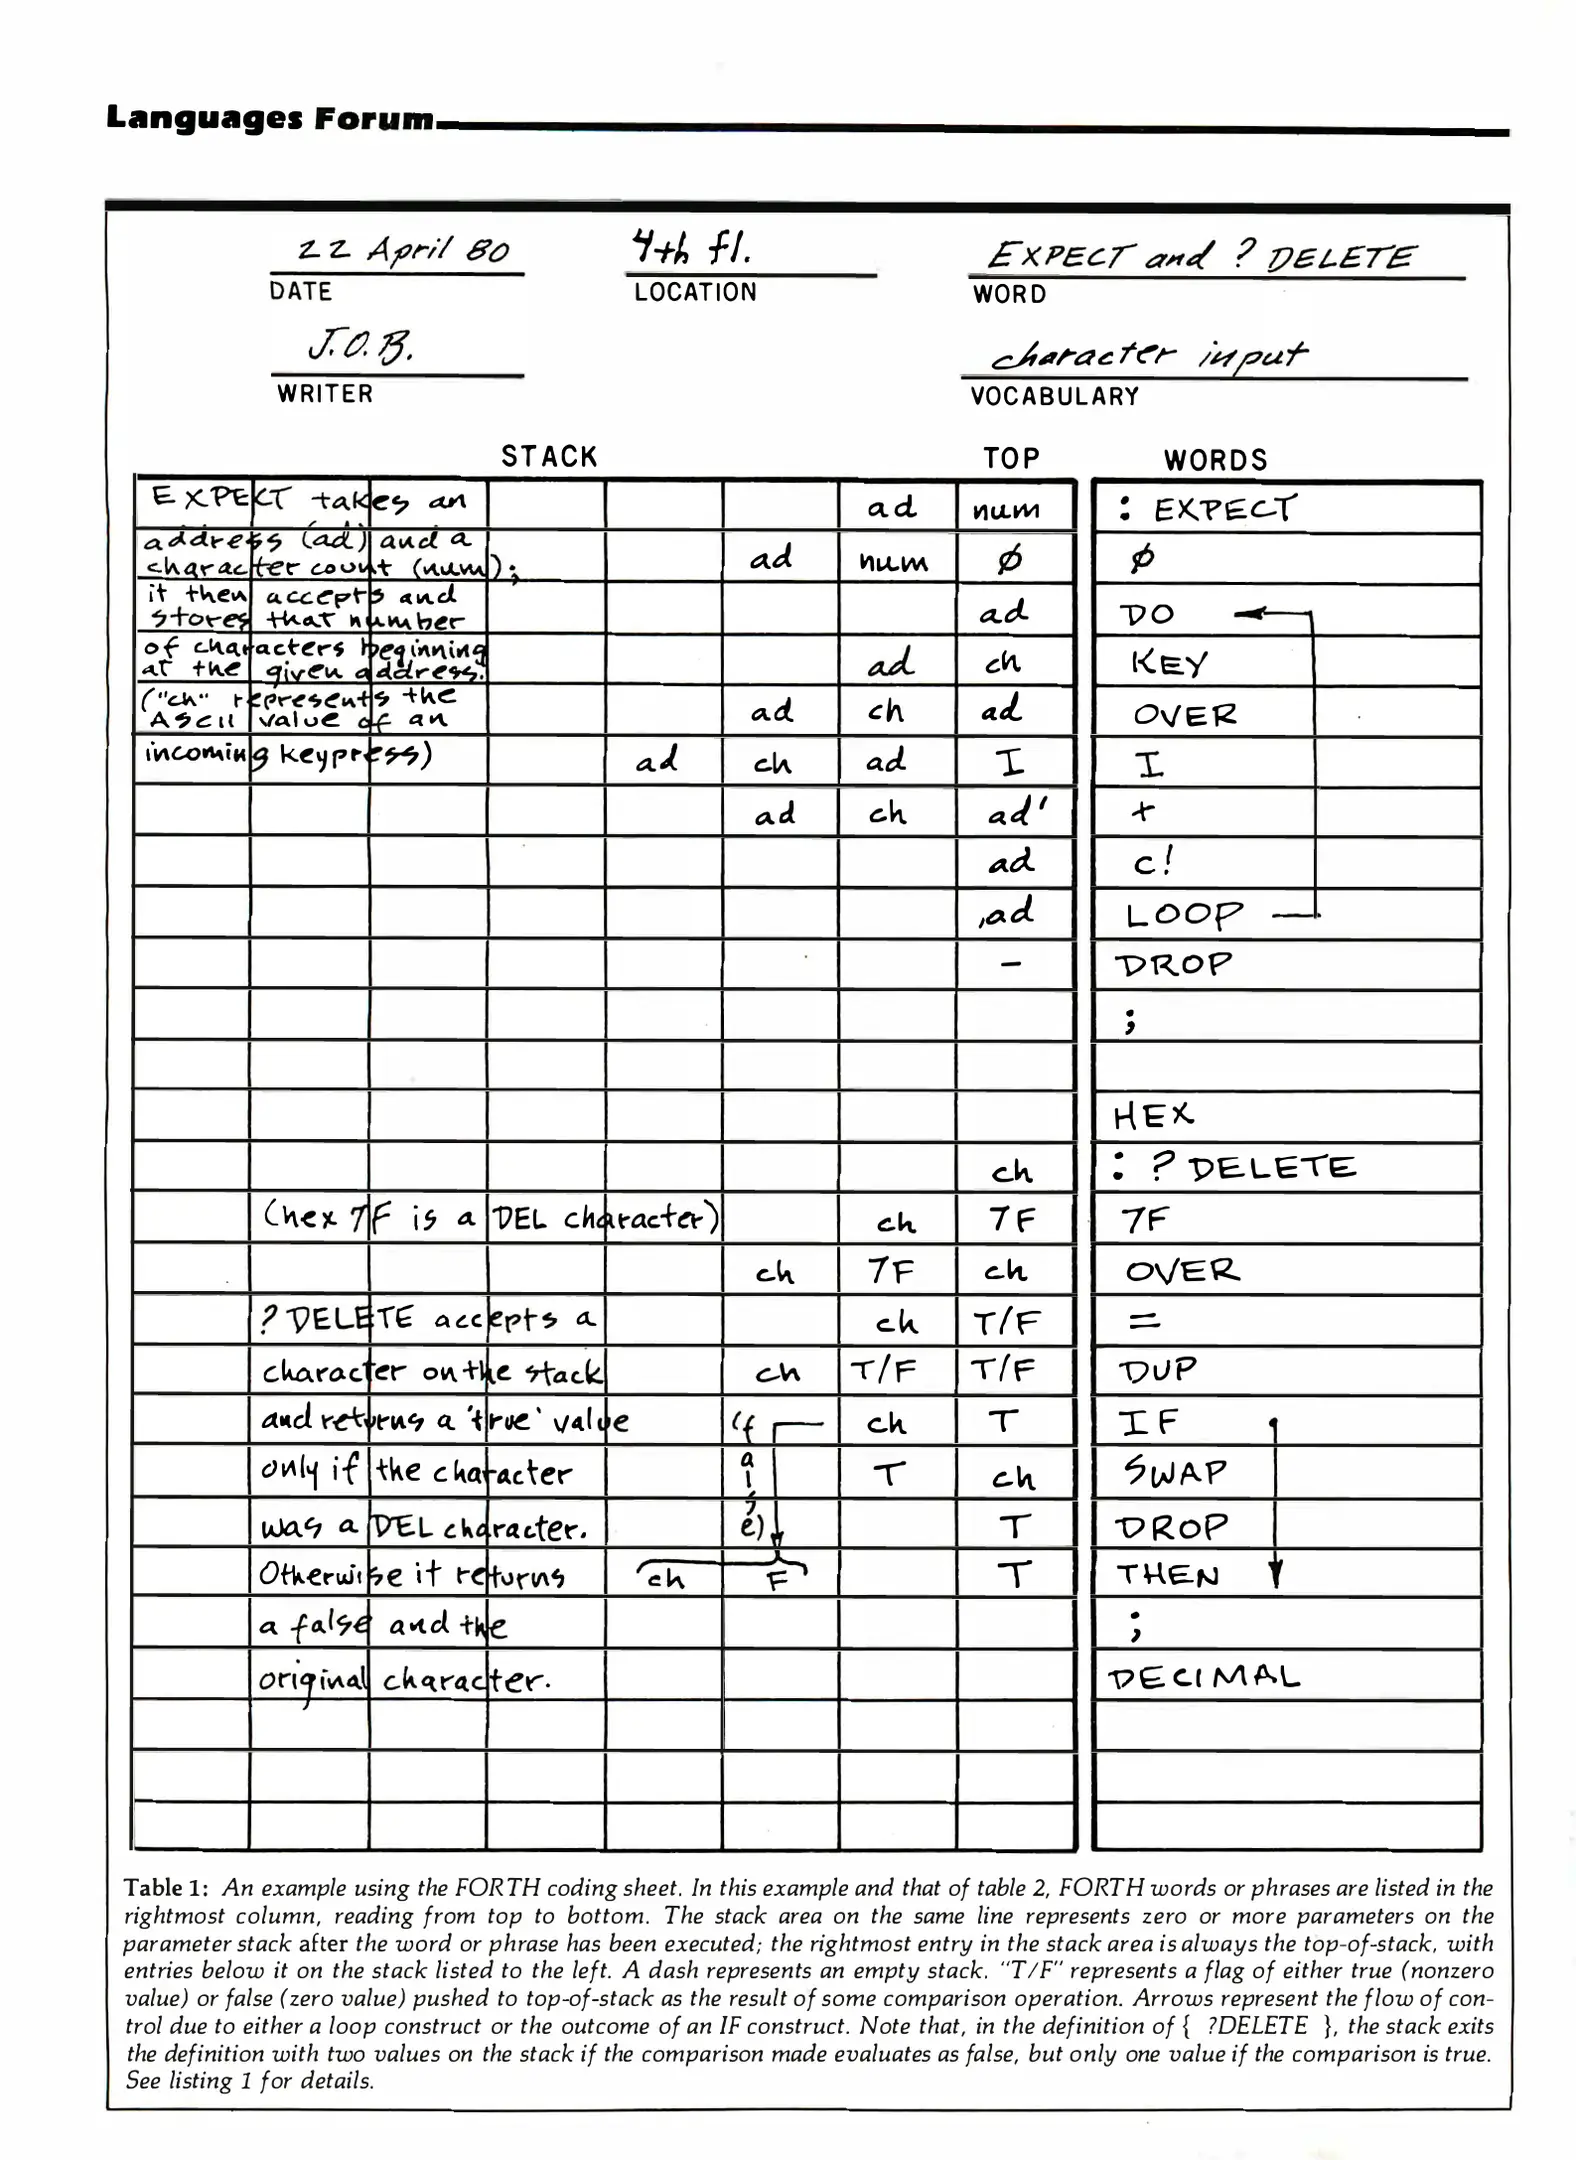 Languages Forum
22 April 80 4th fl. EXPECT and ?DELETE
DATE LOCATION WORD
J.O.B. character input
WRITER VOCABULARY
STACK TOP WORDS
EXPECT takes an ad num : EXPECT
address (ad) and a
character count (num); ad num Ø Ø
it then accepts and
stores that number ad DO
of characters beginning
at the given address. ad ch KEY
("ch" represents the
ASCII value of an ad ch ad OVER
incoming keypress) ad ch ad I I
ad ch ad' +
ad c!
,ad LOOP
- DROP
;
HEX
ch : ?DELETE
(hex 7F is a DEL character) ch 7F 7F
ch 7F ch OVER
?DELETE accepts a ch T/F =
character on the stack ch T/F T/F DUP
and returns a 'true' value (false) ch T IF
only if the character T ch SWAP
was a DEL character. T DROP
Otherwise it returns ch F T THEN
a false and the ;
original character. DECIMAL
Table 1: An example using the FORTH coding sheet. In this example and that of table 2, FORTH words or phrases are listed in the
rightmost column, reading from top to bottom. The stack area on the same line represents zero or more parameters on the
parameter stack after the word or phrase has been executed; the rightmost entry in the stack area is always the top-of-stack, with
entries below it on the stack listed to the left. A dash represents an empty stack. "T/F" represents a flag of either true (nonzero
value) or false (zero value) pushed to top-of-stack as the result of some comparison operation. Arrows represent the flow of con-
trol due to either a loop construct or the outcome of an IF construct. Note that, in the definition of { ?DELETE }, the stack exits
the definition with two values on the stack if the comparison made evaluates as false, but only one value if the comparison is true.
See listing 1 for details.